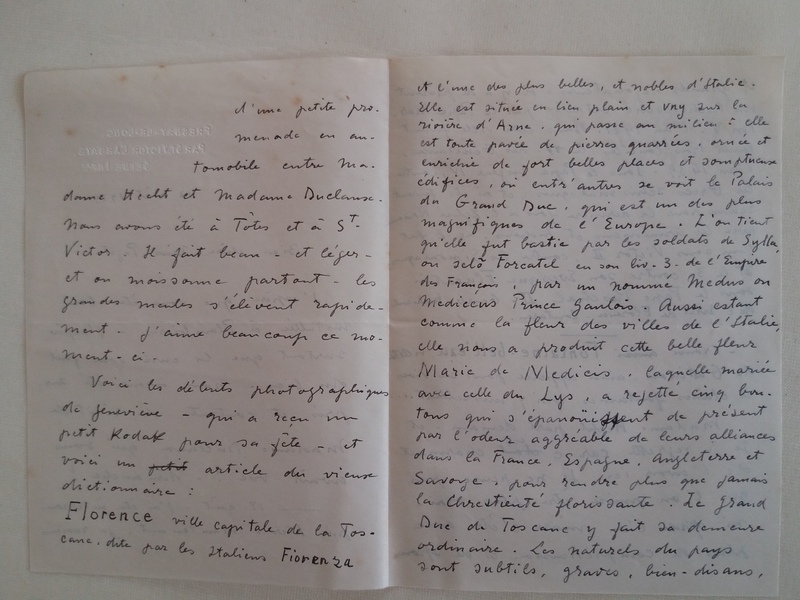 d'une petite pro-
menade en au-
tomobile entre Ma-
dame Hecht et Madame Duclaux.
Nous avons été à Tôtes et à St-
Victor. Il fait beau - et léger -
et on moissonne partout - les
grandes meules s'élèvent rapide-
ment - J'aime beaucoup ce mo-
ment-ci.
Voici les débuts photographiques
de Geneviève - qui a reçu un
petit Kodak pour sa fête - et
voici un petit article du vieux
dictionnaire :
Florence ville capitale de la Tos-
cane, dite par les Italiens Fiorenza
et l'une des plus belles, et nobles d'Italie.
Elle est située en lieu plain et vny sur la
rivière d'Arne, qui passe au milieu : elle
est toute pavée de pierres quarrées, ornée et
enrichie de fort belles places et somptueux
édifices, où entr'autres se voit le Palais
du Grand Duc, qui est un des plus
magnifiques de l'Europe. L'on tient
qu'elle fut bastie par les soldats de Sylla,
ou selõ Forcatel en son liv. 3. de l'Empire
des François, par un nommé Medus ou
Mediceus Prince Gaulois. Aussi estant
comme la fleur des villes de l'Italie,
elle nous a produit cette belle fleur
Marie de Medicis, laquelle mariée
avec celle du Lys, a rejetté cinq bou-
tons qui s'épanoüissent de présent
par l'odeur aggréable de leurs alliances
dans la France, Espagne, Angleterre et
Savoye, pour rendre plus que jamais
la Chrestienté florissante. Le Grand
Duc de Toscane y fait sa demeure
ordinaire. Les naturels du pays
sont subtils, graves, bien-disans,